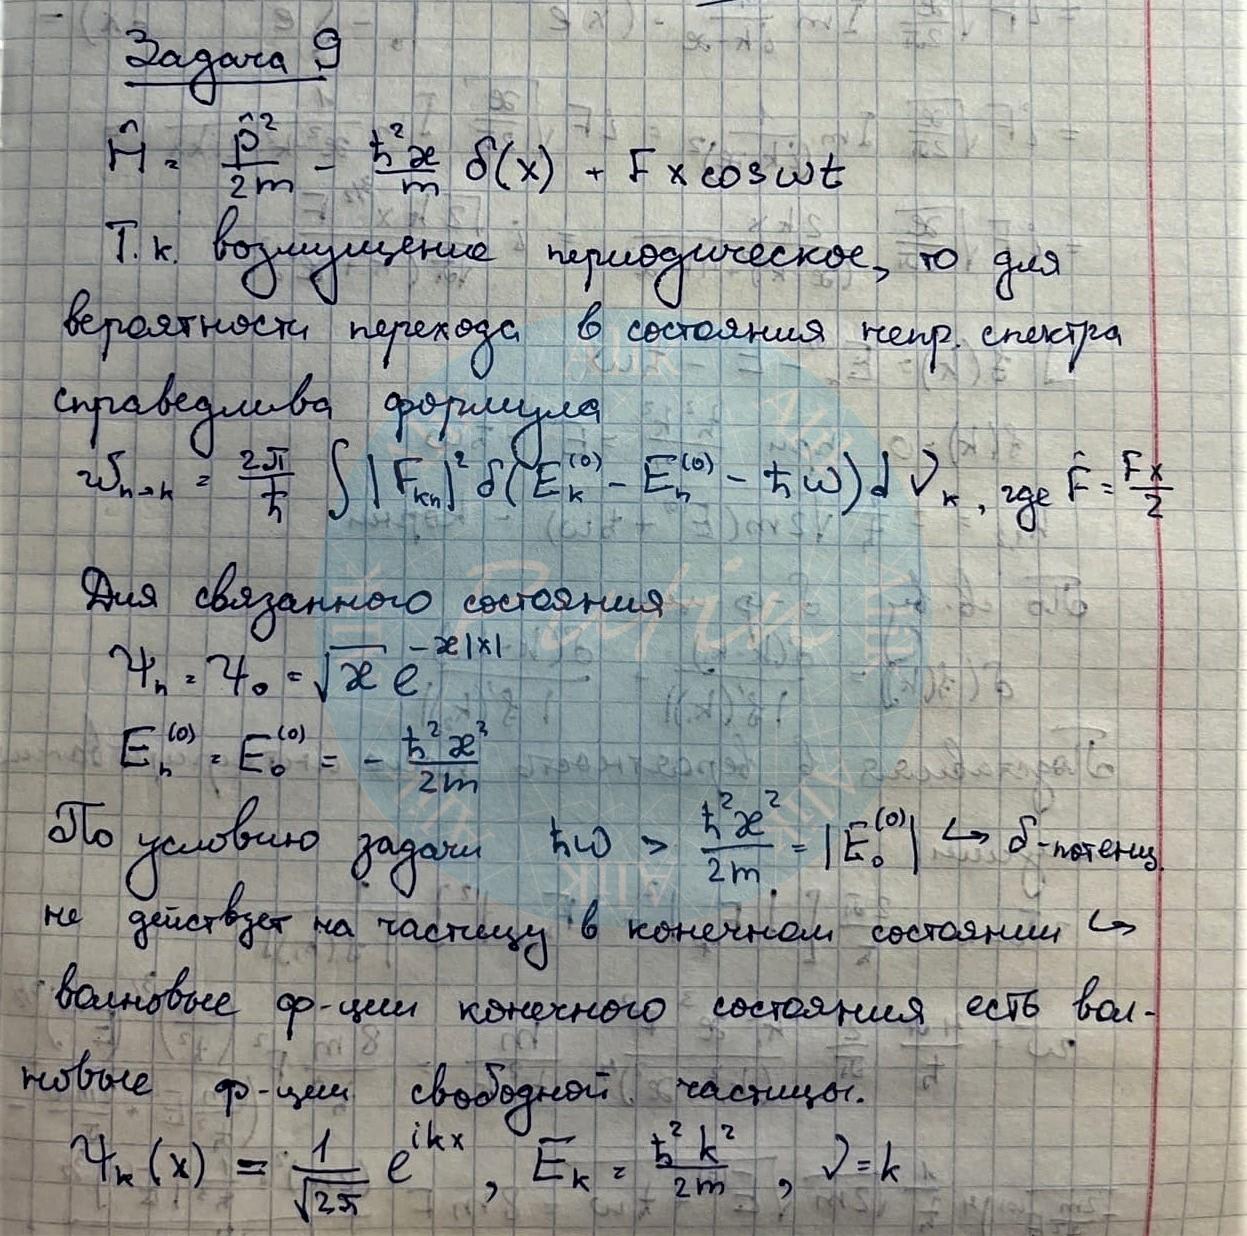 Задача 9
Ĥ = p̂²/2m - ħ²æ/m δ(x) + F x cos ωt
Т.к. возмущение периодическое, то для
вероятности перехода в состояния непр. спектра
справедлива формула
w_{n→k} = 2π/ħ ∫ |F_{kn}|² δ(E_k^{(0)} - E_n^{(0)} - ħω) dν_k, где F̂ = Fx/2
Для связанного состояния
Ψ_n = Ψ_0 = √æ e^{-æ|x|}
E_n^{(0)} = E_0^{(0)} = - ħ²æ²/2m
По условию задачи ħω > ħ²æ²/2m = |E_0^{(0)}| ↪ δ-потенц.
не действует на частицу в конечном состоянии ↪
волновые ф-ции конечного состояния есть вол-
новые ф-ции свободной частицы.
Ψ_k(x) = 1/√2π e^{ikx}, E_k = ħ²k²/2m, ν = k